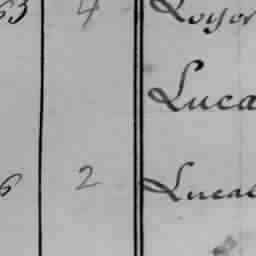 63 4 Loyor
Luca
6 2 Lucas